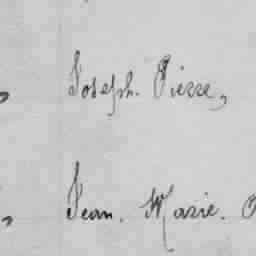 Joseph. Pierre,
Jean. Marie.